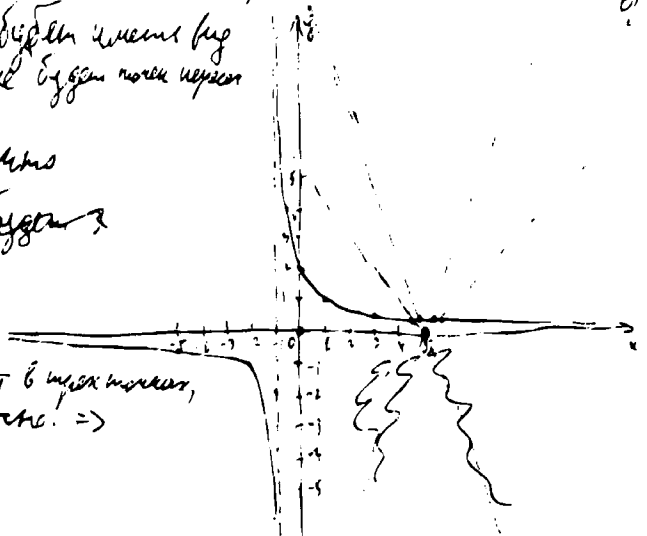 будет иметь вид
будет точек перес
что
будет 3
в трех точках,
=>
y
5
4
3
2
-5 -3 -2 -1 0 1 2 3 4 5
x
-1
-2
-3
-4
-5